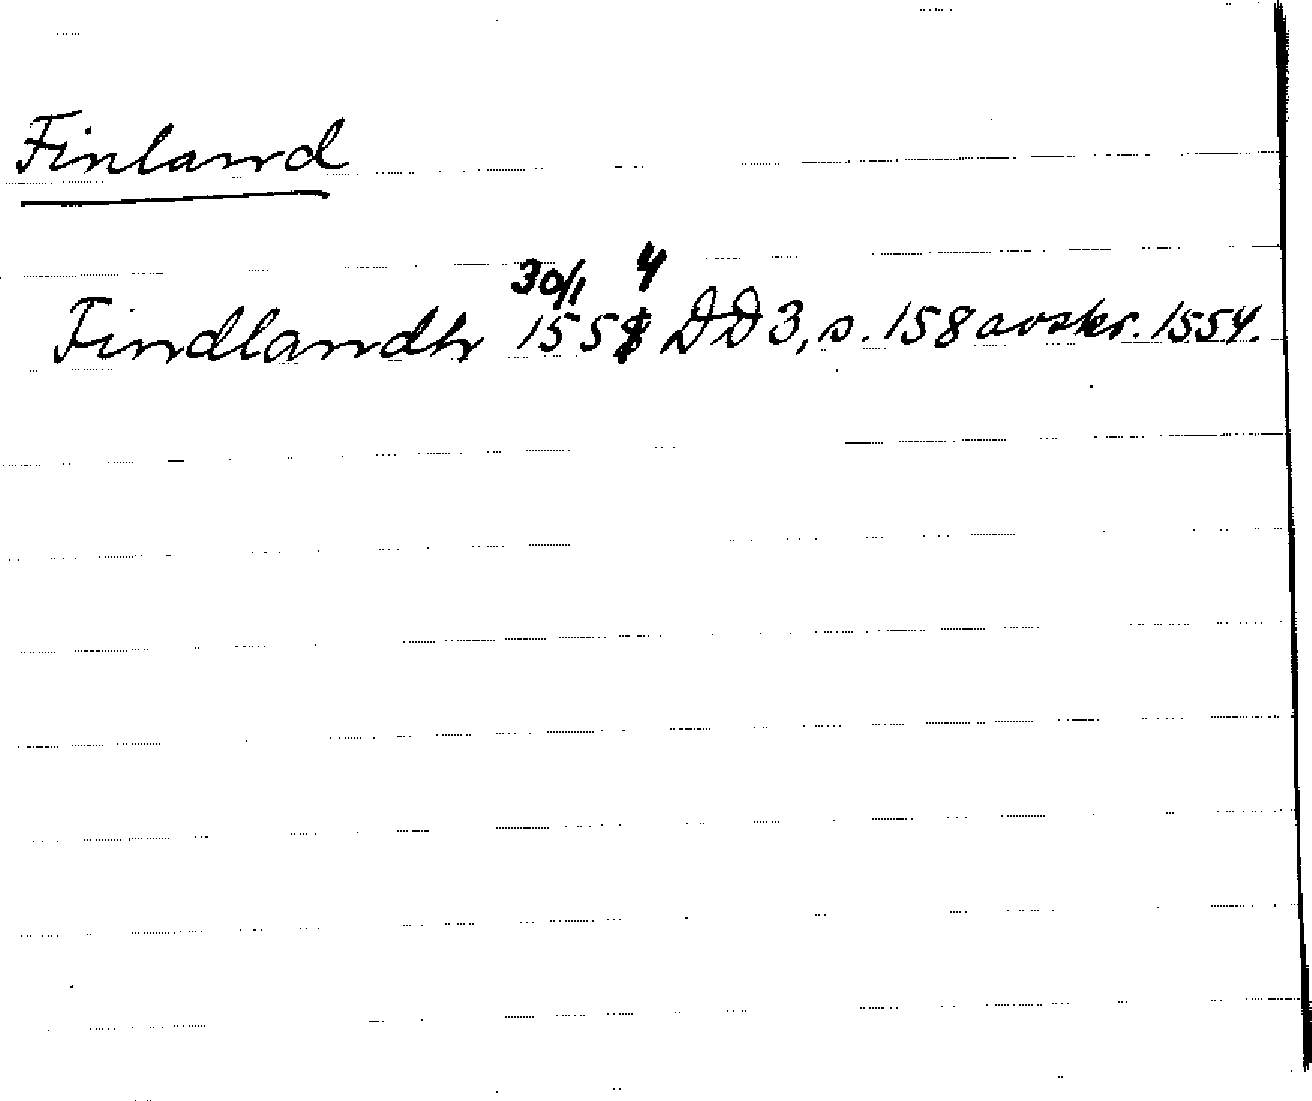 Finland
30/1 4
Findlandh 155 DD 3, s. 158 avskr. 1554.